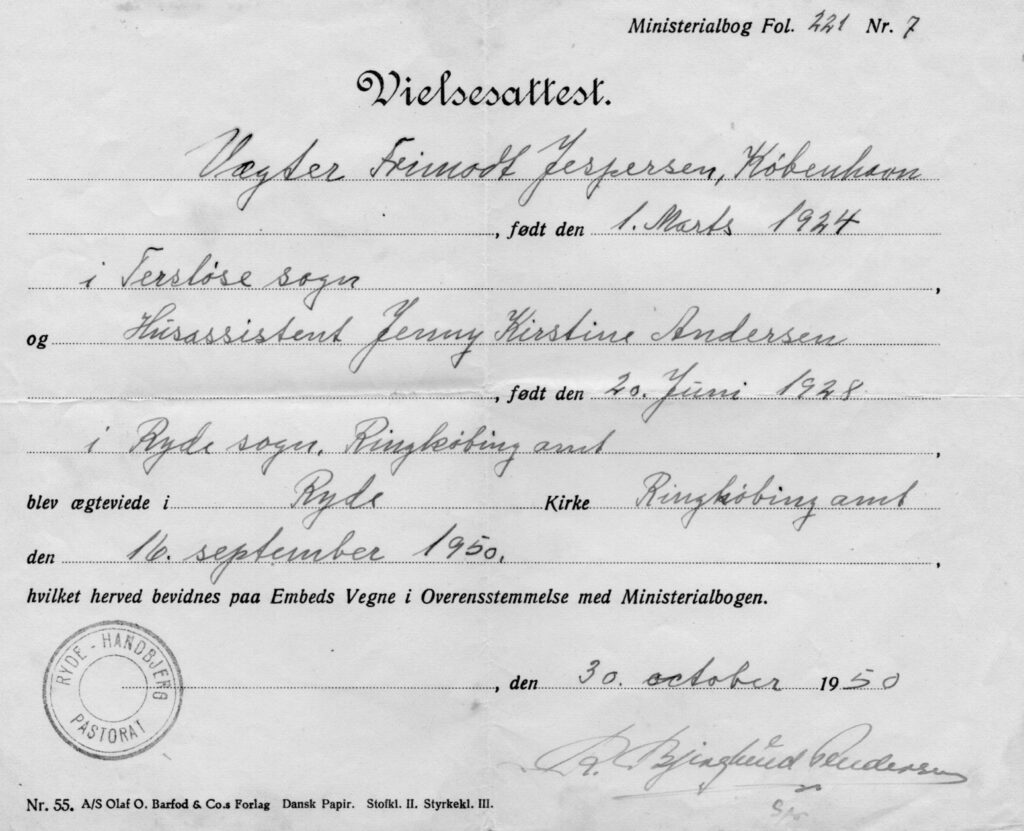 Ministerialbog Fol. 221 Nr. 7
Vielsesattest.
Vægter Frimodt Jespersen, København
, født den 1. Marts 1924
i Tersløse sogn ,
og Husassistent Jenny Kirstine Andersen
, født den 20. Juni 1928
i Ryde sogn, Ringkøbing amt ,
blev ægteviede i Ryde Kirke Ringkøbing amt
den 16. september 1950. ,
hvilket herved bevidnes paa Embeds Vegne i Overensstemmelse med Ministerialbogen.
RYDE - HANDBJERG
PASTORAT
, den 30. october 1950
R. Andersen
Nr. 55. A/S Olaf O. Barfod & Co.s Forlag Dansk Papir. Stofkl. II. Styrkekl. III.